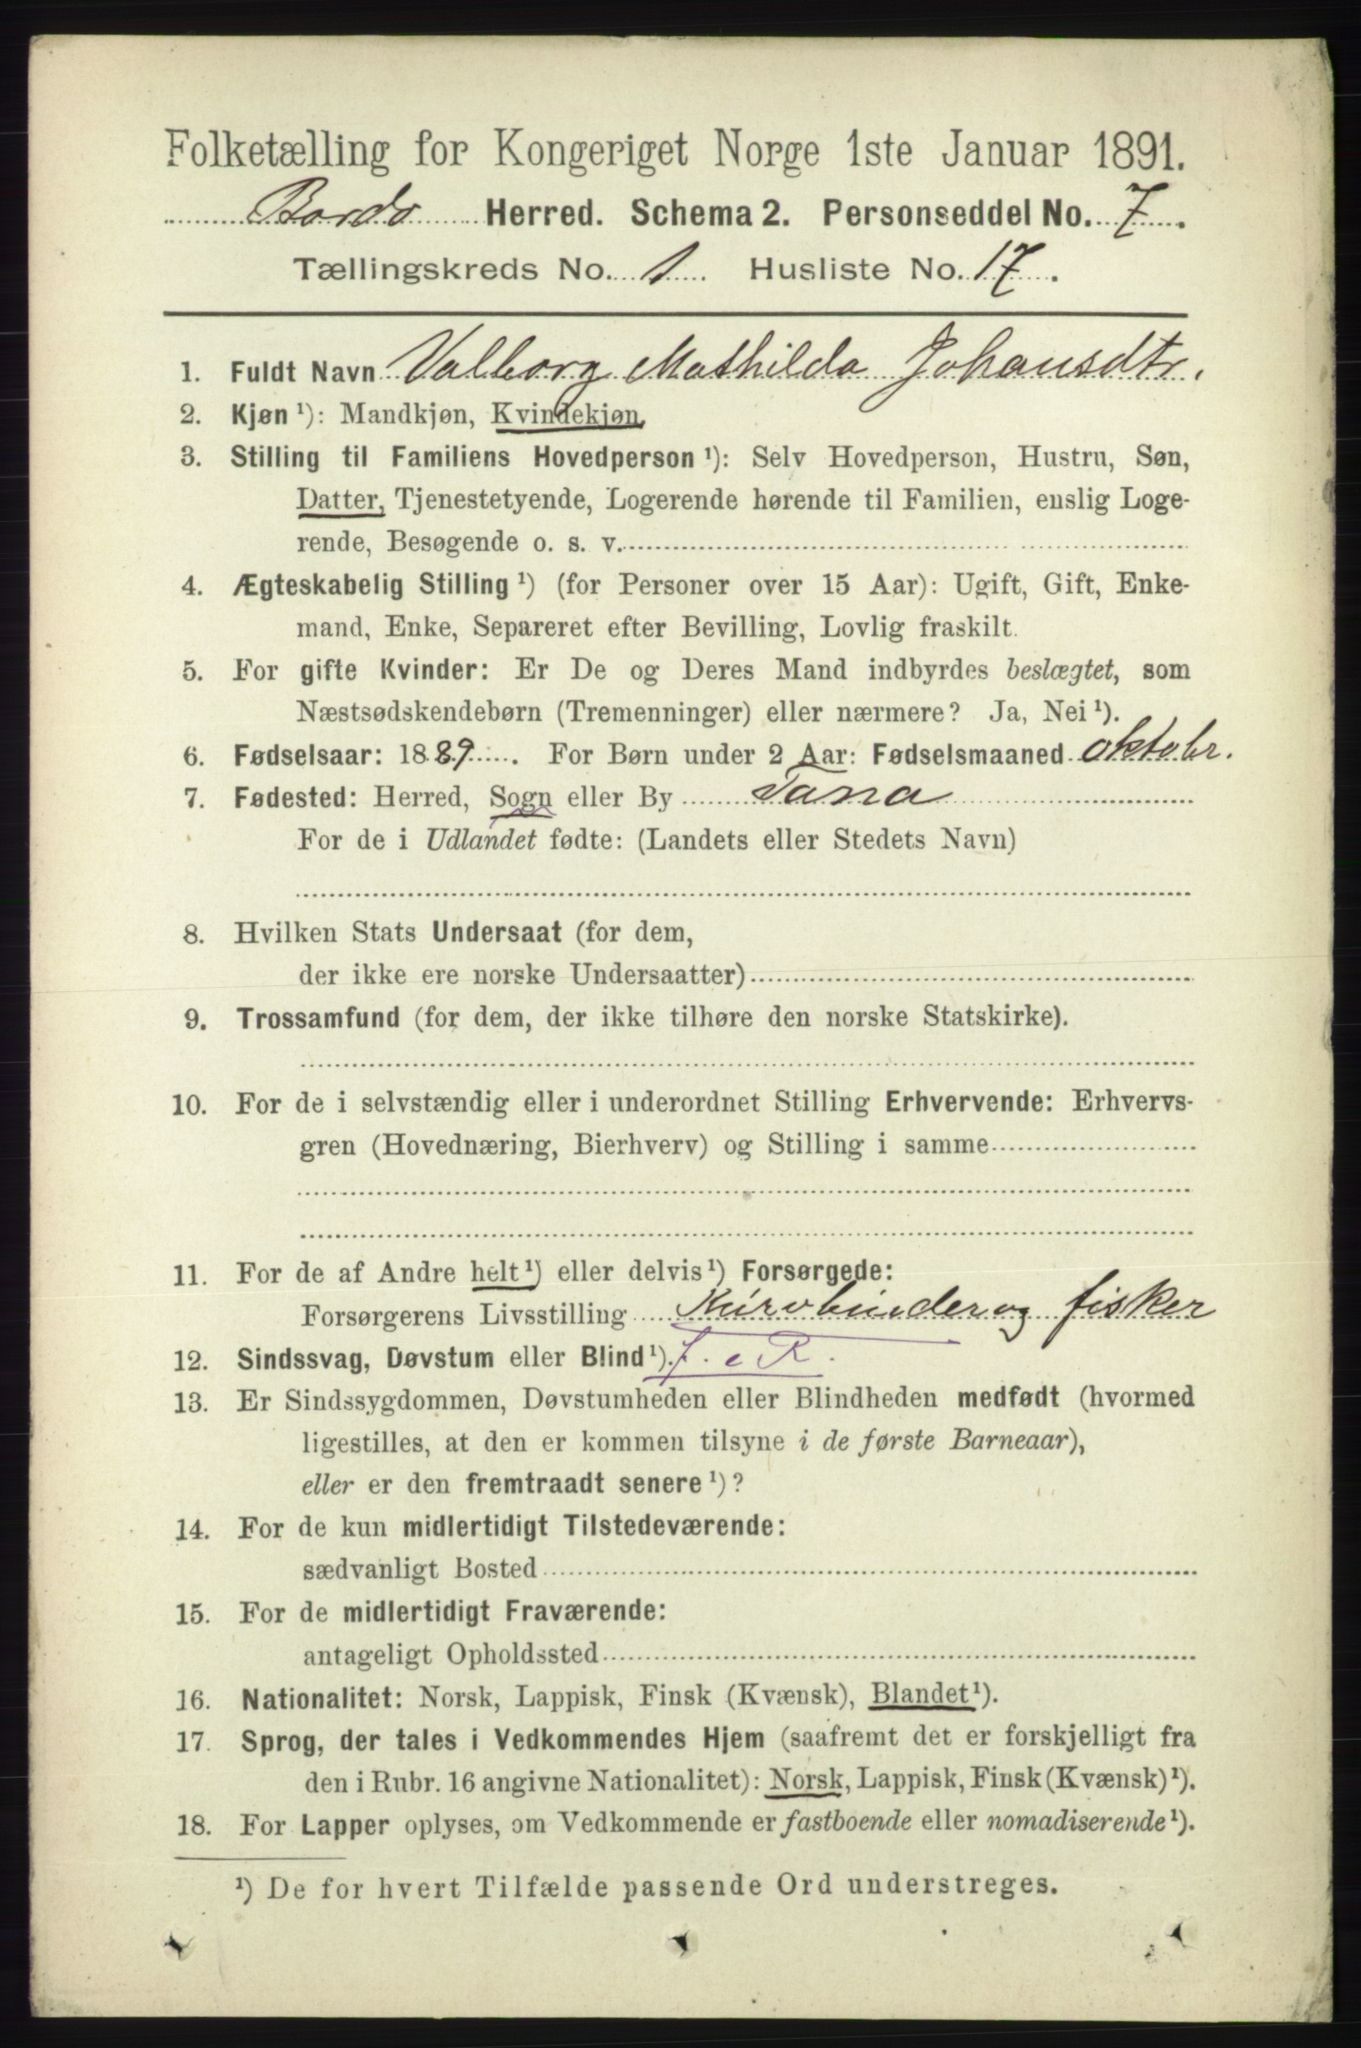 Folketælling for Kongeriget Norge 1ste Januar 1891.
Bardo Herred. Schema 2. Personseddel No. 7.
Tællingskreds No. 1 Husliste No. 17.
1. Fuldt Navn Valborg Mathilda Johansdtr.
2. Kjøn ¹): Mandkjøn, Kvindekjøn.
3. Stilling til Familiens Hovedperson ¹): Selv Hovedperson, Hustru, Søn,
Datter, Tjenestetyende, Logerende hørende til Familien, enslig Loge-
rende, Besøgende o. s. v.
4. Ægteskabelig Stilling ¹) (for Personer over 15 Aar): Ugift, Gift, Enke-
mand, Enke, Separeret efter Bevilling, Lovlig fraskilt.
5. For gifte Kvinder: Er De og Deres Mand indbyrdes beslægtet, som
Næstsødskendebørn (Tremenninger) eller nærmere? Ja, Nei ¹).
6. Fødselsaar: 1889. For Børn under 2 Aar: Fødselsmaaned oktobr.
7. Fødested: Herred, Sogn eller By Tana
For de i Udlandet fødte: (Landets eller Stedets Navn)
8. Hvilken Stats Undersaat (for dem,
der ikke ere norske Undersaatter)
9. Trossamfund (for dem, der ikke tilhøre den norske Statskirke).
10. For de i selvstændig eller i underordnet Stilling Erhvervende: Erhvervs-
gren (Hovednæring, Bierhverv) og Stilling i samme
11. For de af Andre helt ¹) eller delvis ¹) Forsørgede:
Forsørgerens Livsstilling og fisker
12. Sindssvag, Døvstum eller Blind ¹).
13. Er Sindssygdommen, Døvstumheden eller Blindheden medfødt (hvormed
ligestilles, at den er kommen tilsyne i de første Barneaar),
eller er den fremtraadt senere ¹)?
14. For de kun midlertidigt Tilstedeværende:
sædvanligt Bosted
15. For de midlertidigt Fraværende:
antageligt Opholdssted
16. Nationalitet: Norsk, Lappisk, Finsk (Kvænsk), Blandet ¹).
17. Sprog, der tales i Vedkommendes Hjem (saafremt det er forskjelligt fra
den i Rubr. 16 angivne Nationalitet): Norsk, Lappisk, Finsk (Kvænsk) ¹).
18. For Lapper oplyses, om Vedkommende er fastboende eller nomadiserende ¹).
¹) De for hvert Tilfælde passende Ord understreges.